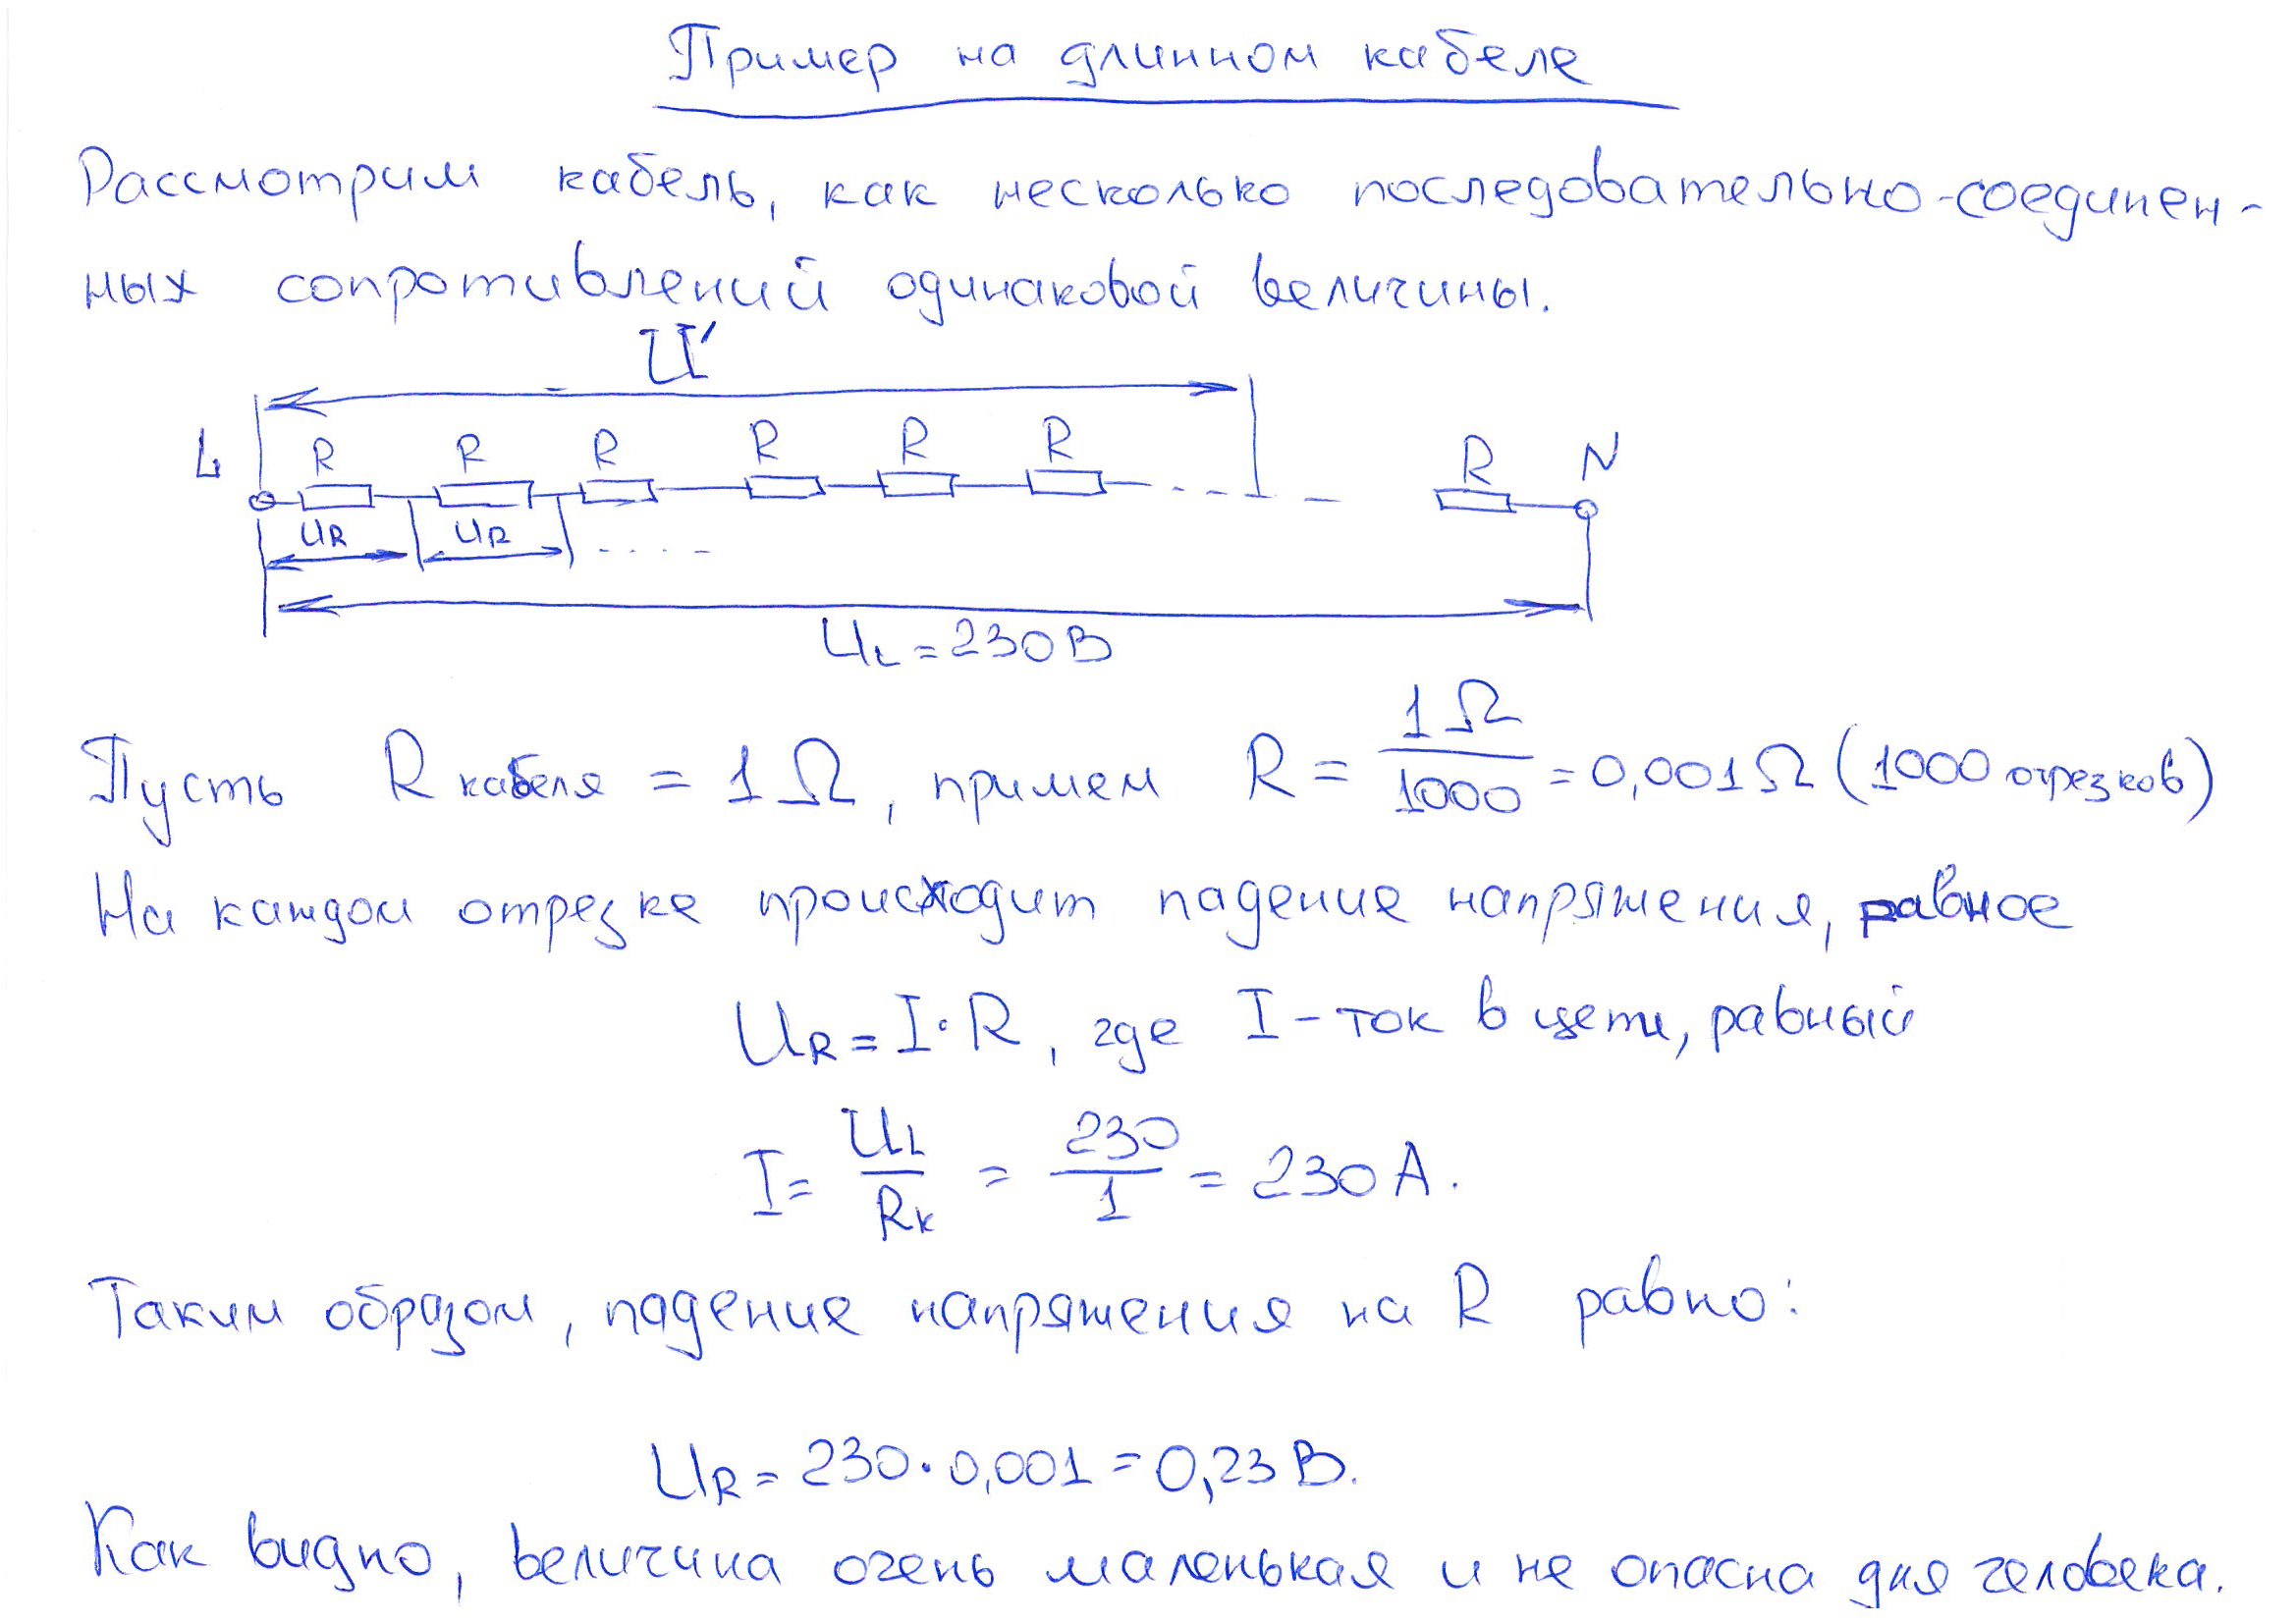 Пример на длинном кабеле
Рассмотрим кабель, как несколько последовательно-соединен-
ных сопротивлений одинаковой величины.
U'
L R R R R R R R N
UR UR .....
UL = 230 В
Пусть R кабеля = 1 Ω, примем R = 1 Ω / 1000 = 0,001 Ω (1000 отрезков)
На каждом отрезке происходит падение напряжения, равное
UR = I · R, где I - ток в цепи, равный
I = UL / Rк = 230 / 1 = 230 А.
Таким образом, падение напряжения на R равно:
UR = 230 · 0,001 = 0,23 В.
Как видно, величина очень маленькая и не опасна для человека.